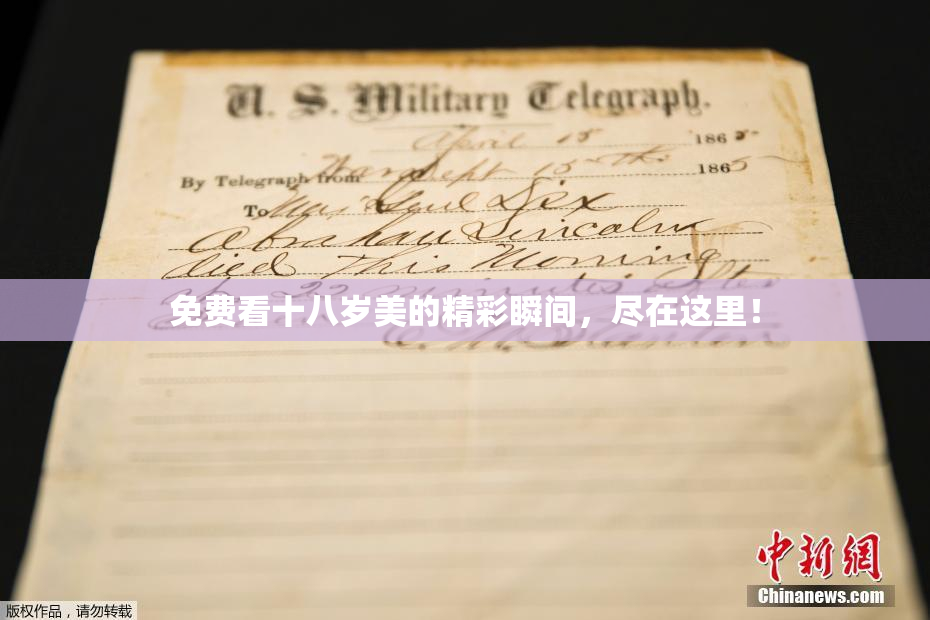 U. S. Military Telegraph.
April 15 1865
By Telegraph from War Dept 15th 1865
To Maj Genl Dix
Abraham Lincoln
died This Morning
22 minutes after
免费看十八岁美的精彩瞬间，尽在这里！
Stanton
中新网
Chinanews.com
版权作品，请勿转载